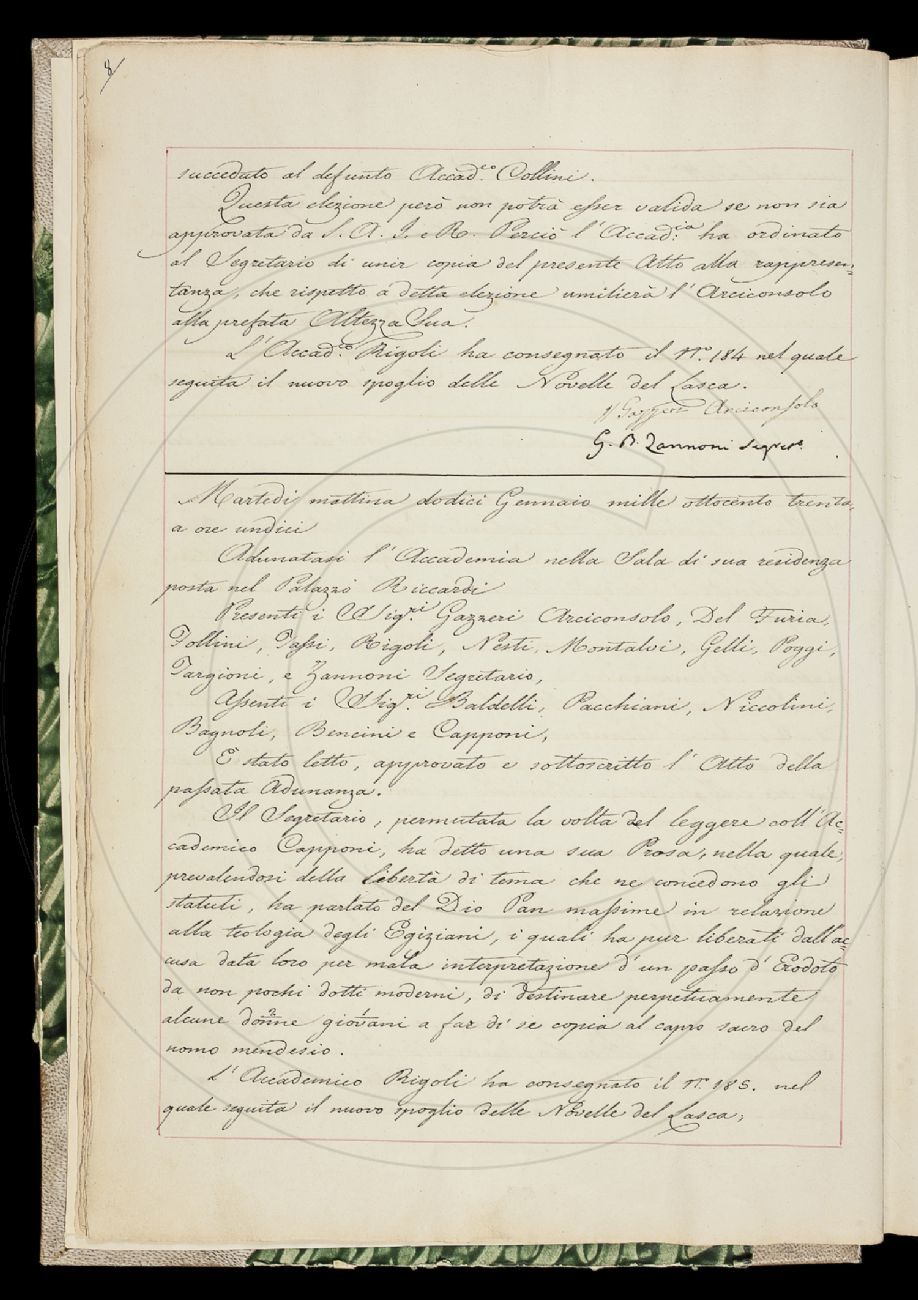 8
succeduto al defunto Accad.co Collini.
Questa elezione però non potrà esser valida se non sia
approvata da S. A. I. e R. Perciò l'Accad.ia ha ordinato
al Segretario di unir copia del presente Atto alla rappresen=
tanza, che rispetto a detta elezione umilierà l'Arciconsolo
alla prefata Altezza Sua.
L'Accad.co Rigoli ha consegnato il N.o 184 nel quale
seguita il nuovo spoglio delle Novelle del Lasca.
Gazzeri Arciconsolo
G. B. Zannoni Segret.o
Martedì mattina dodici Gennaio mille ottocento trenta,
a ore undici
Adunatasi l'Accademia nella Sala di sua residenza
posta nel Palazzo Riccardi
Presenti i Sig.ri Gazzeri Arciconsolo, Del Furia,
Follini, Tassi, Rigoli, Nesti, Montalvi, Gelli, Poggi,
Targioni, e Zannoni Segretario,
Assenti i Sig.ri Baldelli, Pacchiani, Niccolini,
Bagnoli, Bencini e Capponi,
E stato letto, approvato e sottoscritto l'Atto della
passata Adunanza.
Il Segretario, permutata la volta del leggere coll'Ac=
cademico Capponi, ha detto una sua Prosa, nella quale,
prevalendosi della libertà di tema che ne concedono gli
statuti, ha parlato del Dio Pan massime in relazione
alla teologia degli Egiziani, i quali ha pur liberati dall'ac=
cusa data loro per mala interpretazione d'un passo d'Erodoto
da non pochi dotti moderni, di destinare perpetuamente
alcune donne giovani a far di se copia al capro sacro del
nomo mendesio.
L'Accademico Rigoli ha consegnato il N.o 185. nel
quale seguita il nuovo spoglio delle Novelle del Lasca,